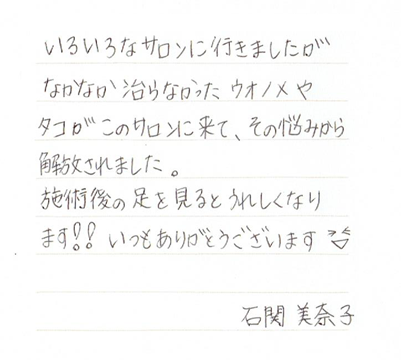 いろいろなサロンに行きましたが
なかなか治らなかったウオノメや
タコがこのサロンに来て、その悩みから
解放されました。
施術後の足を見るとうれしくなり
ます!! いつもありがとうございます
石関 美奈子